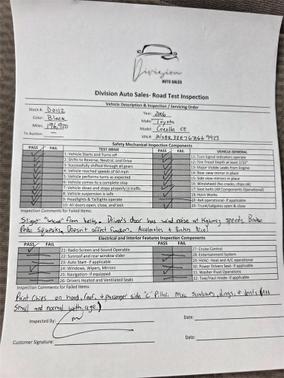 Division
AUTO SALES
Division Auto Sales- Road Test Inspection
Vehicle Description & Inspection / Servicing Order
Stock #:
Year: 2006
Color: Black
Make: Toyota
Miles: 196,970
Model: Corolla CE
To Auction:
VIN #:
Safety Mechanical Inspection Components
PASS FAIL TEST DRIVE PASS FAIL VEHICLE GENERAL
1- Vehicle Starts and Turns off
2- Shifts to Reverse, Neutral, and Drive
3- Successfully shifted through all gears
4- Vehicle reached speed of 60 mph
5- Vehicle performs turns as expected
6- Vehicle comes to a complete stop
7- Vehicle drives and stops properly in traffic
8- Vehicle suspension is safe
9- Headlights & Taillights operate
10- All doors open, close, and lock
11- Turn Signal indicators operate
12- Tire Tread depth at least 2/32"
13- Minor Visible Leaks from Engine
14- Rear view mirror in place
15- Side view mirrors in place
16- Windshield (No cracks, chips ok)
17- Seat belts (All Components Operational)
18- Horn Works
19- 4x4 operational: if applicable
20- Trunk/tailgates open & close
Inspection Comments for Failed Items:
Driver's door has wind noise at highway speeds. Brake
Doesn't affect function.
Electrical and Interior Features Inspection Components
PASS FAIL PASS FAIL
21- Radio Screen and Sound Operable
22- Sunroof and rear window slider
23- Auto Start- if applicable
24- Windows, Wipers, Mirrors
25- Navigation - if equipped
26- Drivers Heated and Ventilated Seats
27- Cruise Control
28- Entertainment System
29- HVAC- Heat and A/C operational
30- Power Drivers Seat- if applicable
31- Washer Fluid Operations
32- Tow/Haul Mode- if applicable
Inspection Comments for Failed Items:
Paint Chips on hood, roof, & passenger side "C" Pillar. Misc Scratches, dings, & dents (
Small and normal with age.)
Inspected By:
Date:
Customer Signature:
Date: